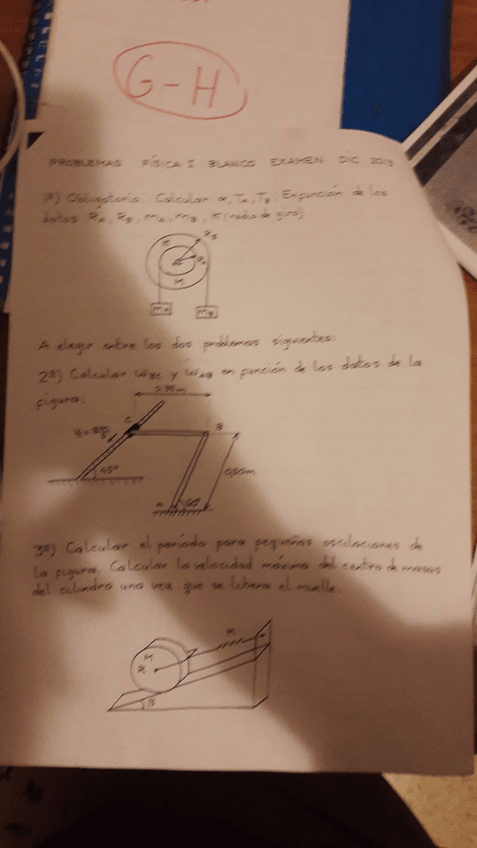 G-H
PROBLEMAS FÍSICA I BLANCO EXAMEN DIC 2013
1º) Obligatorio. Calcular α, TA, TB. En función de los
datos RA, RB, mA, mB, K (radio de giro)
RB
RA
M
mA
mB
A elegir entre los dos problemas siguientes:
2º) Calcular ωBC y ωAB en función de los datos de la
figura:
0,35m
C
B
45°
0,50m
A
60°
3º) Calcular el período para pequeñas oscilaciones de
la figura. Calcular la velocidad máxima del centro de masas
del cilindro una vez que se libera el muelle.
K
M
R
θ